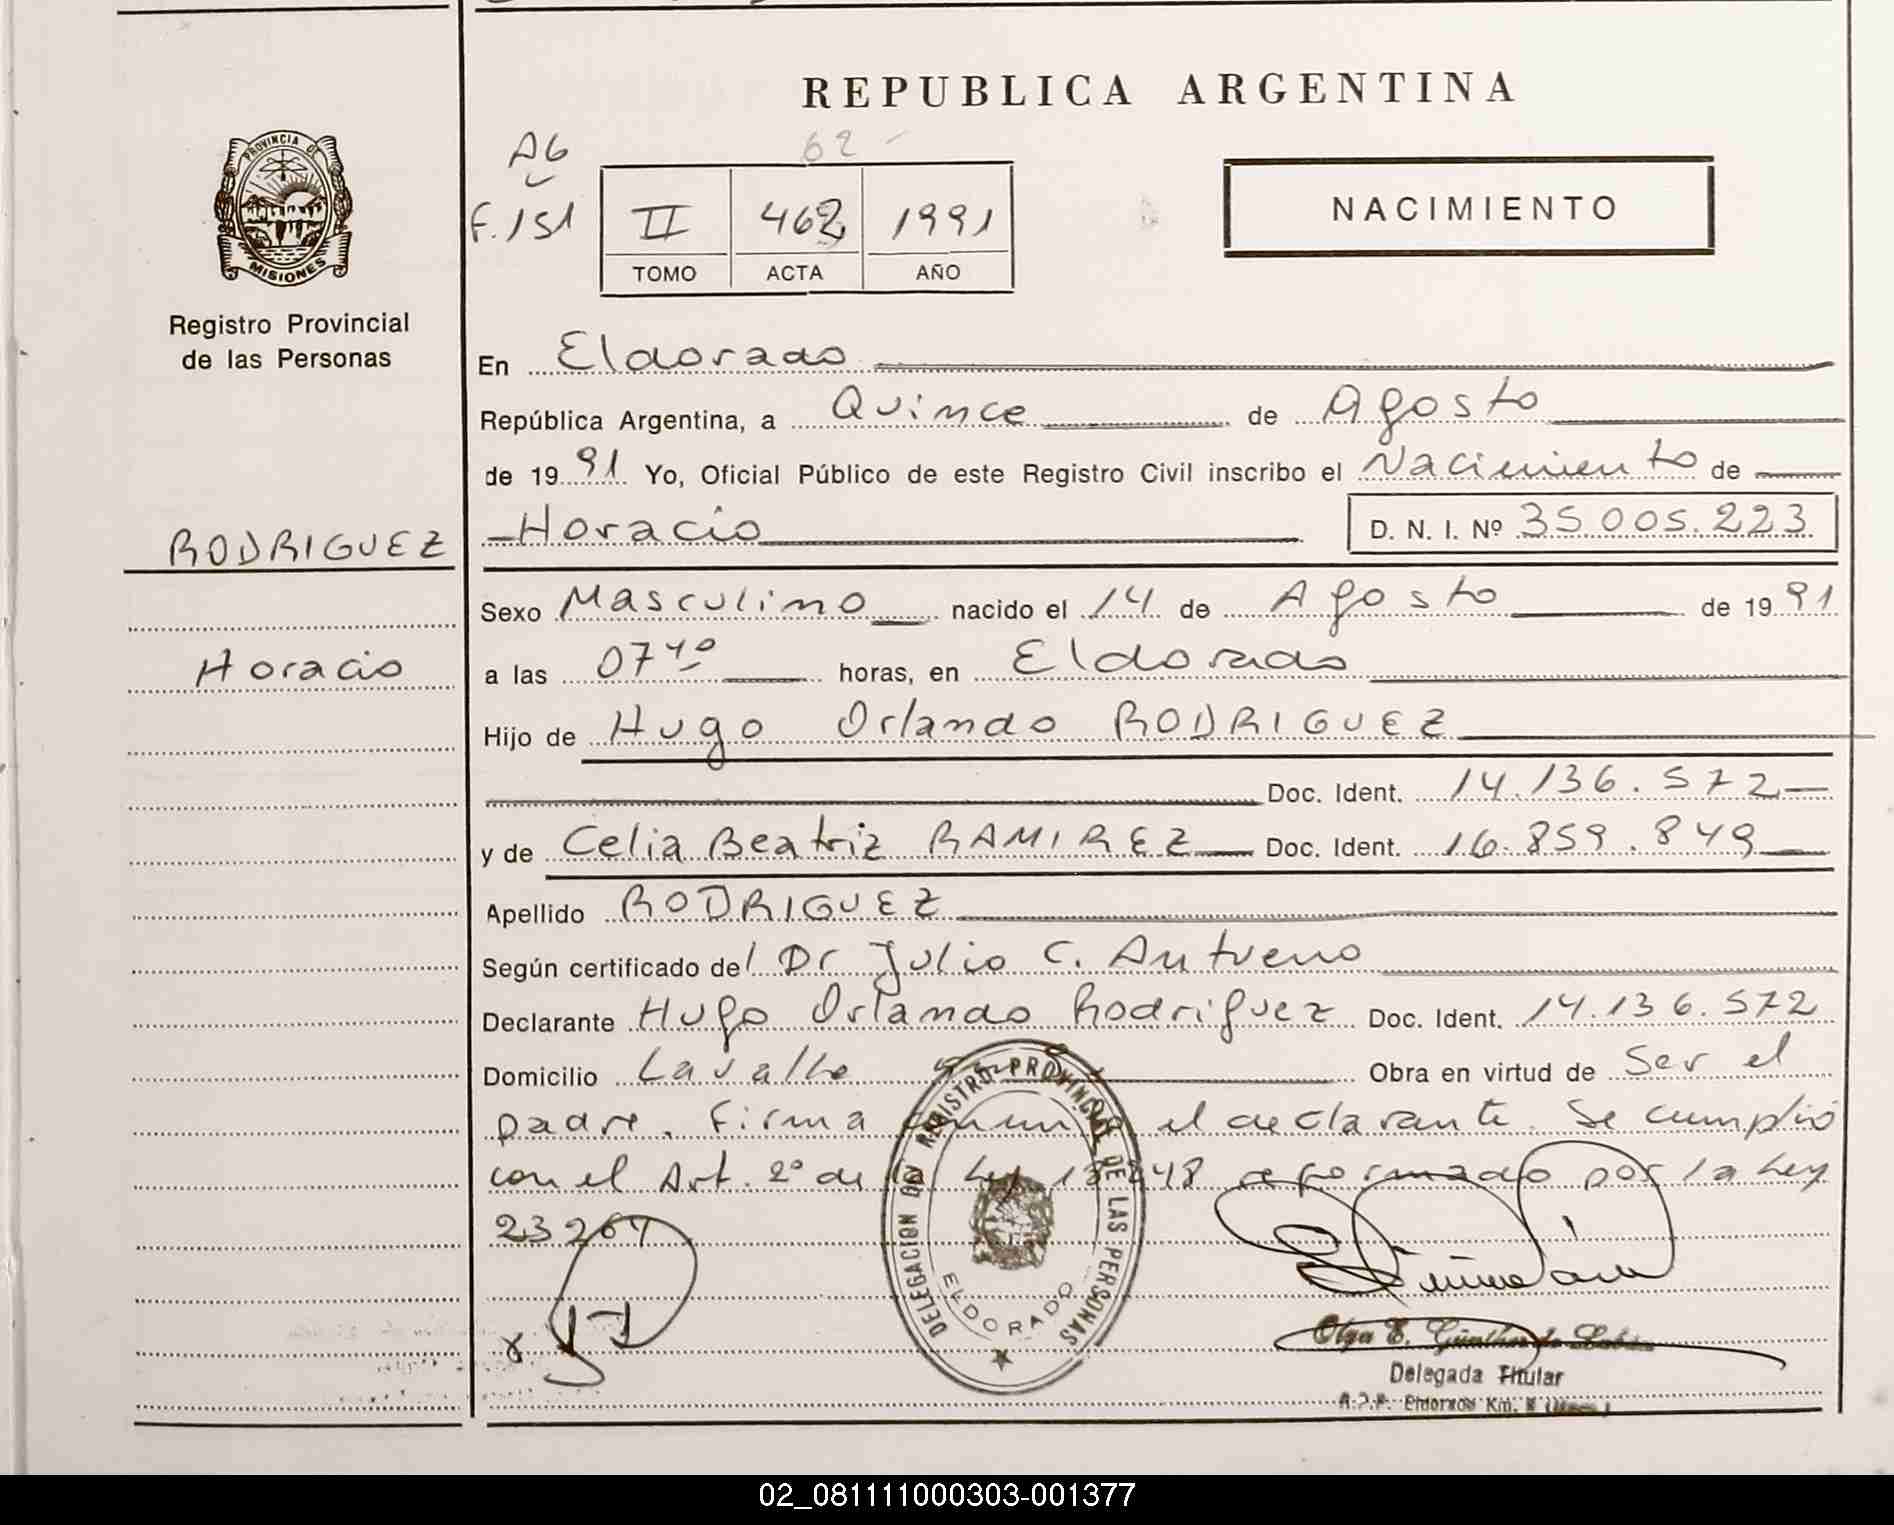 REPUBLICA ARGENTINA
PROVINCIA DE
MISIONES
Registro Provincial
de las Personas
A6
62
F. 151
II 462 1991
TOMO ACTA AÑO
NACIMIENTO
En Eldorado
República Argentina, a Quince de Agosto
de 1991 Yo, Oficial Público de este Registro Civil inscribo el Nacimiento de
RODRIGUEZ
Horacio D. N. I. Nº 35.005.223
Sexo Masculino nacido el 14 de Agosto de 1991
Horacio
a las 07 40 horas, en Eldorado
Hijo de Hugo Orlando RODRIGUEZ
Doc. Ident. 14.136.572
y de Celia Beatriz RAMIREZ Doc. Ident. 16.859.849
Apellido RODRIGUEZ
Según certificado del Dr Julio C. Antueno
Declarante Hugo Orlando Rodriguez Doc. Ident. 14.136.572
Domicilio Lavalle Obra en virtud de Ser el
padre. Firma el declarante. Se cumplió
con el Art. 2º de la Ley 13248 reformado por la Ley
23264
DELEGACION DEL REGISTRO PROVINCIAL DE LAS PERSONAS
ELDORADO
Olga E. Günther de
Delegada Titular
R.P.P. Eldorado Km.
02_081111000303-001377